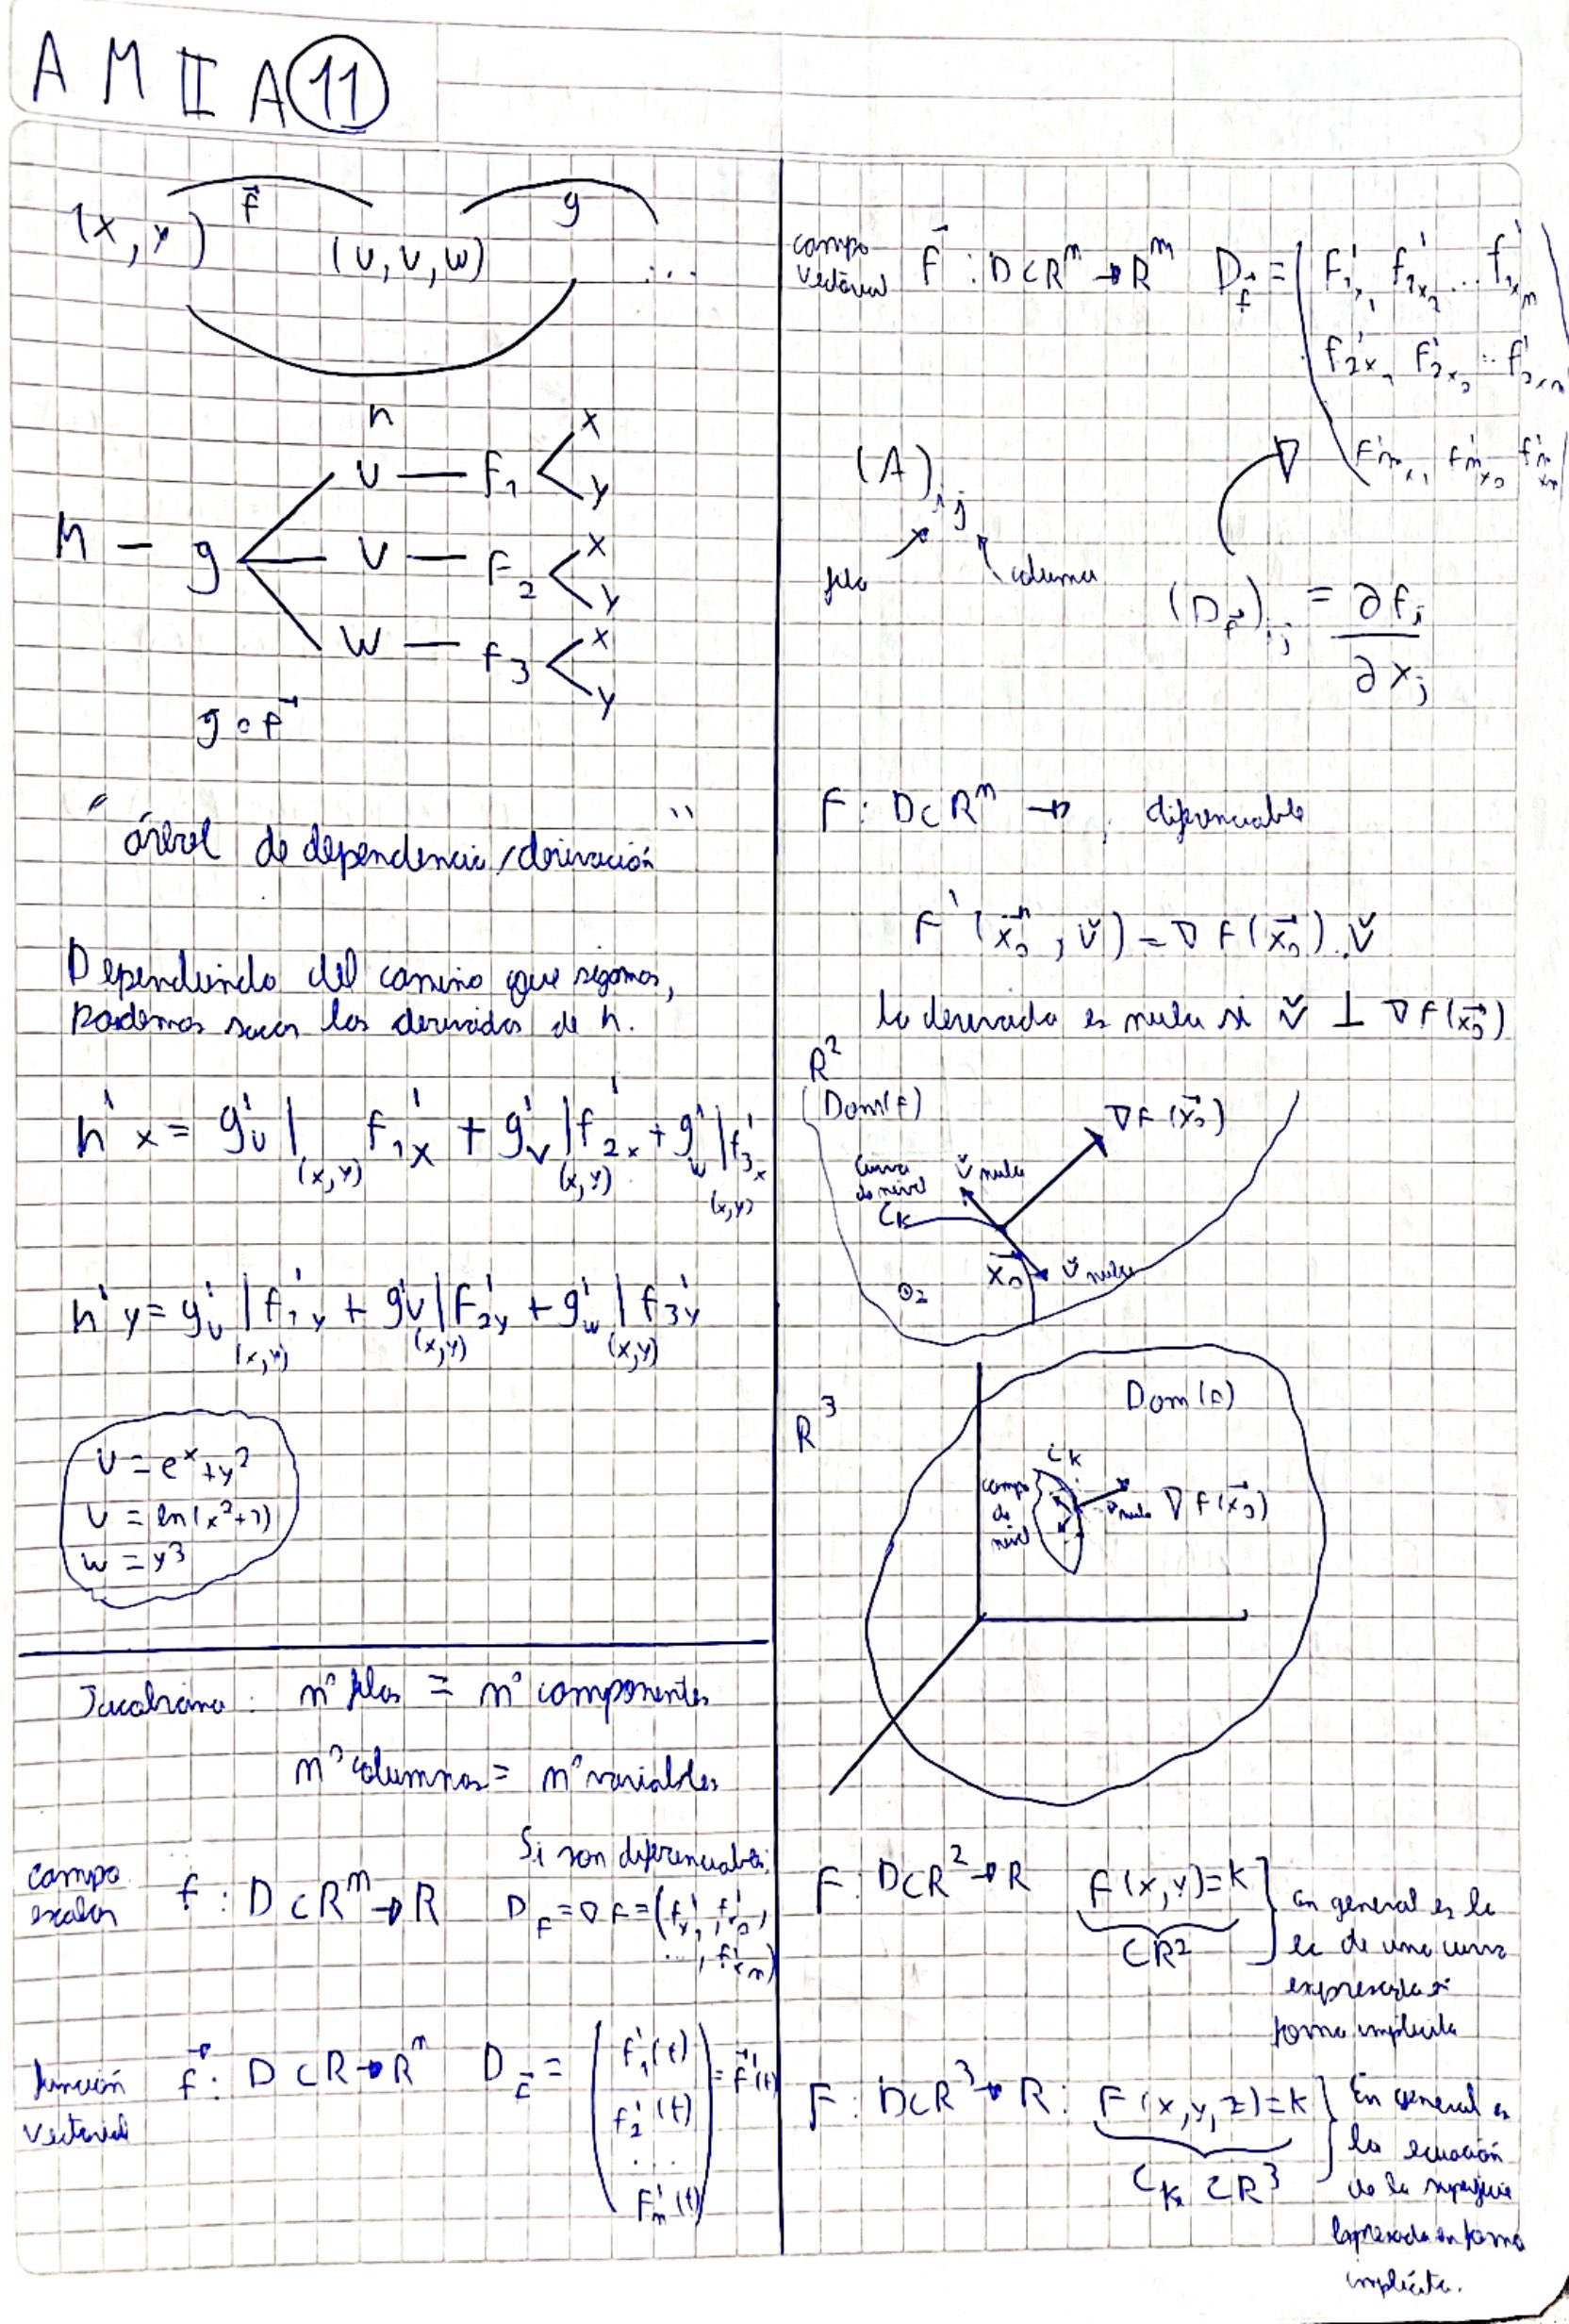 A M II A 11
(x, y) f⃗ (u, v, w) g ...
h
h - g
u — f₁ < x y
v — f₂ < x y
w — f₃ < x y
g ∘ f⃗
"árbol de dependencia/derivación"
Dependiendo del camino que sigamos,
podemos sacar las derivadas de h.
h'x = g'u |(x,y) f₁'x + g'v |(x,y) f₂'x + g'w |(x,y) f₃'x
h'y = g'u |(x,y) f₁'y + g'v |(x,y) f₂'y + g'w |(x,y) f₃'y
u = eˣ + y²
v = ln(x²+1)
w = y³
Jacobiana: nº filas = nº componentes
nº columnas = nº variables
Si son diferenciables:
campo escalar f : D ⊂ Rⁿ → R D_f = ∇f = (f'x₁, f'x₂, ..., f'xn)
función vectorial f⃗ : D ⊂ R → Rⁿ D_f⃗ = ( f₁'(t) f₂'(t) ... fn'(t) ) = f⃗'(t)
campo vectorial f⃗ : D ⊂ Rⁿ → Rᵐ D_f⃗ = ( f₁'x₁ f₁'x₂ ... f₁'xn
f₂'x₁ f₂'x₂ ... f₂'xn
fm'x₁ fm'x₂ fm'xn )
(A)ij
fila columna
(D_f⃗)ij = ∂fi / ∂xj
F : D ⊂ Rⁿ → , diferenciable
F'(x⃗₀, v̌) = ∇F(x⃗₀) . v̌
la derivada es nula si v̌ ⊥ ∇F(x⃗₀)
R²
Dom(f)
∇F(x⃗₀)
Curva de nivel v̌ nula
Ck
x⃗₀ v̌ nula
R³
Dom(f)
Ck
campo de nivel
nula ∇F(x⃗₀)
F : D ⊂ R² → R F(x,y)=k } en general es la
⊂ R² ec de una curva
expresada
forma implícita
F : D ⊂ R³ → R : F(x,y,z)=k } En general es
Ck ⊂ R³ la ecuación
de la superficie
expresada en forma
implícita.